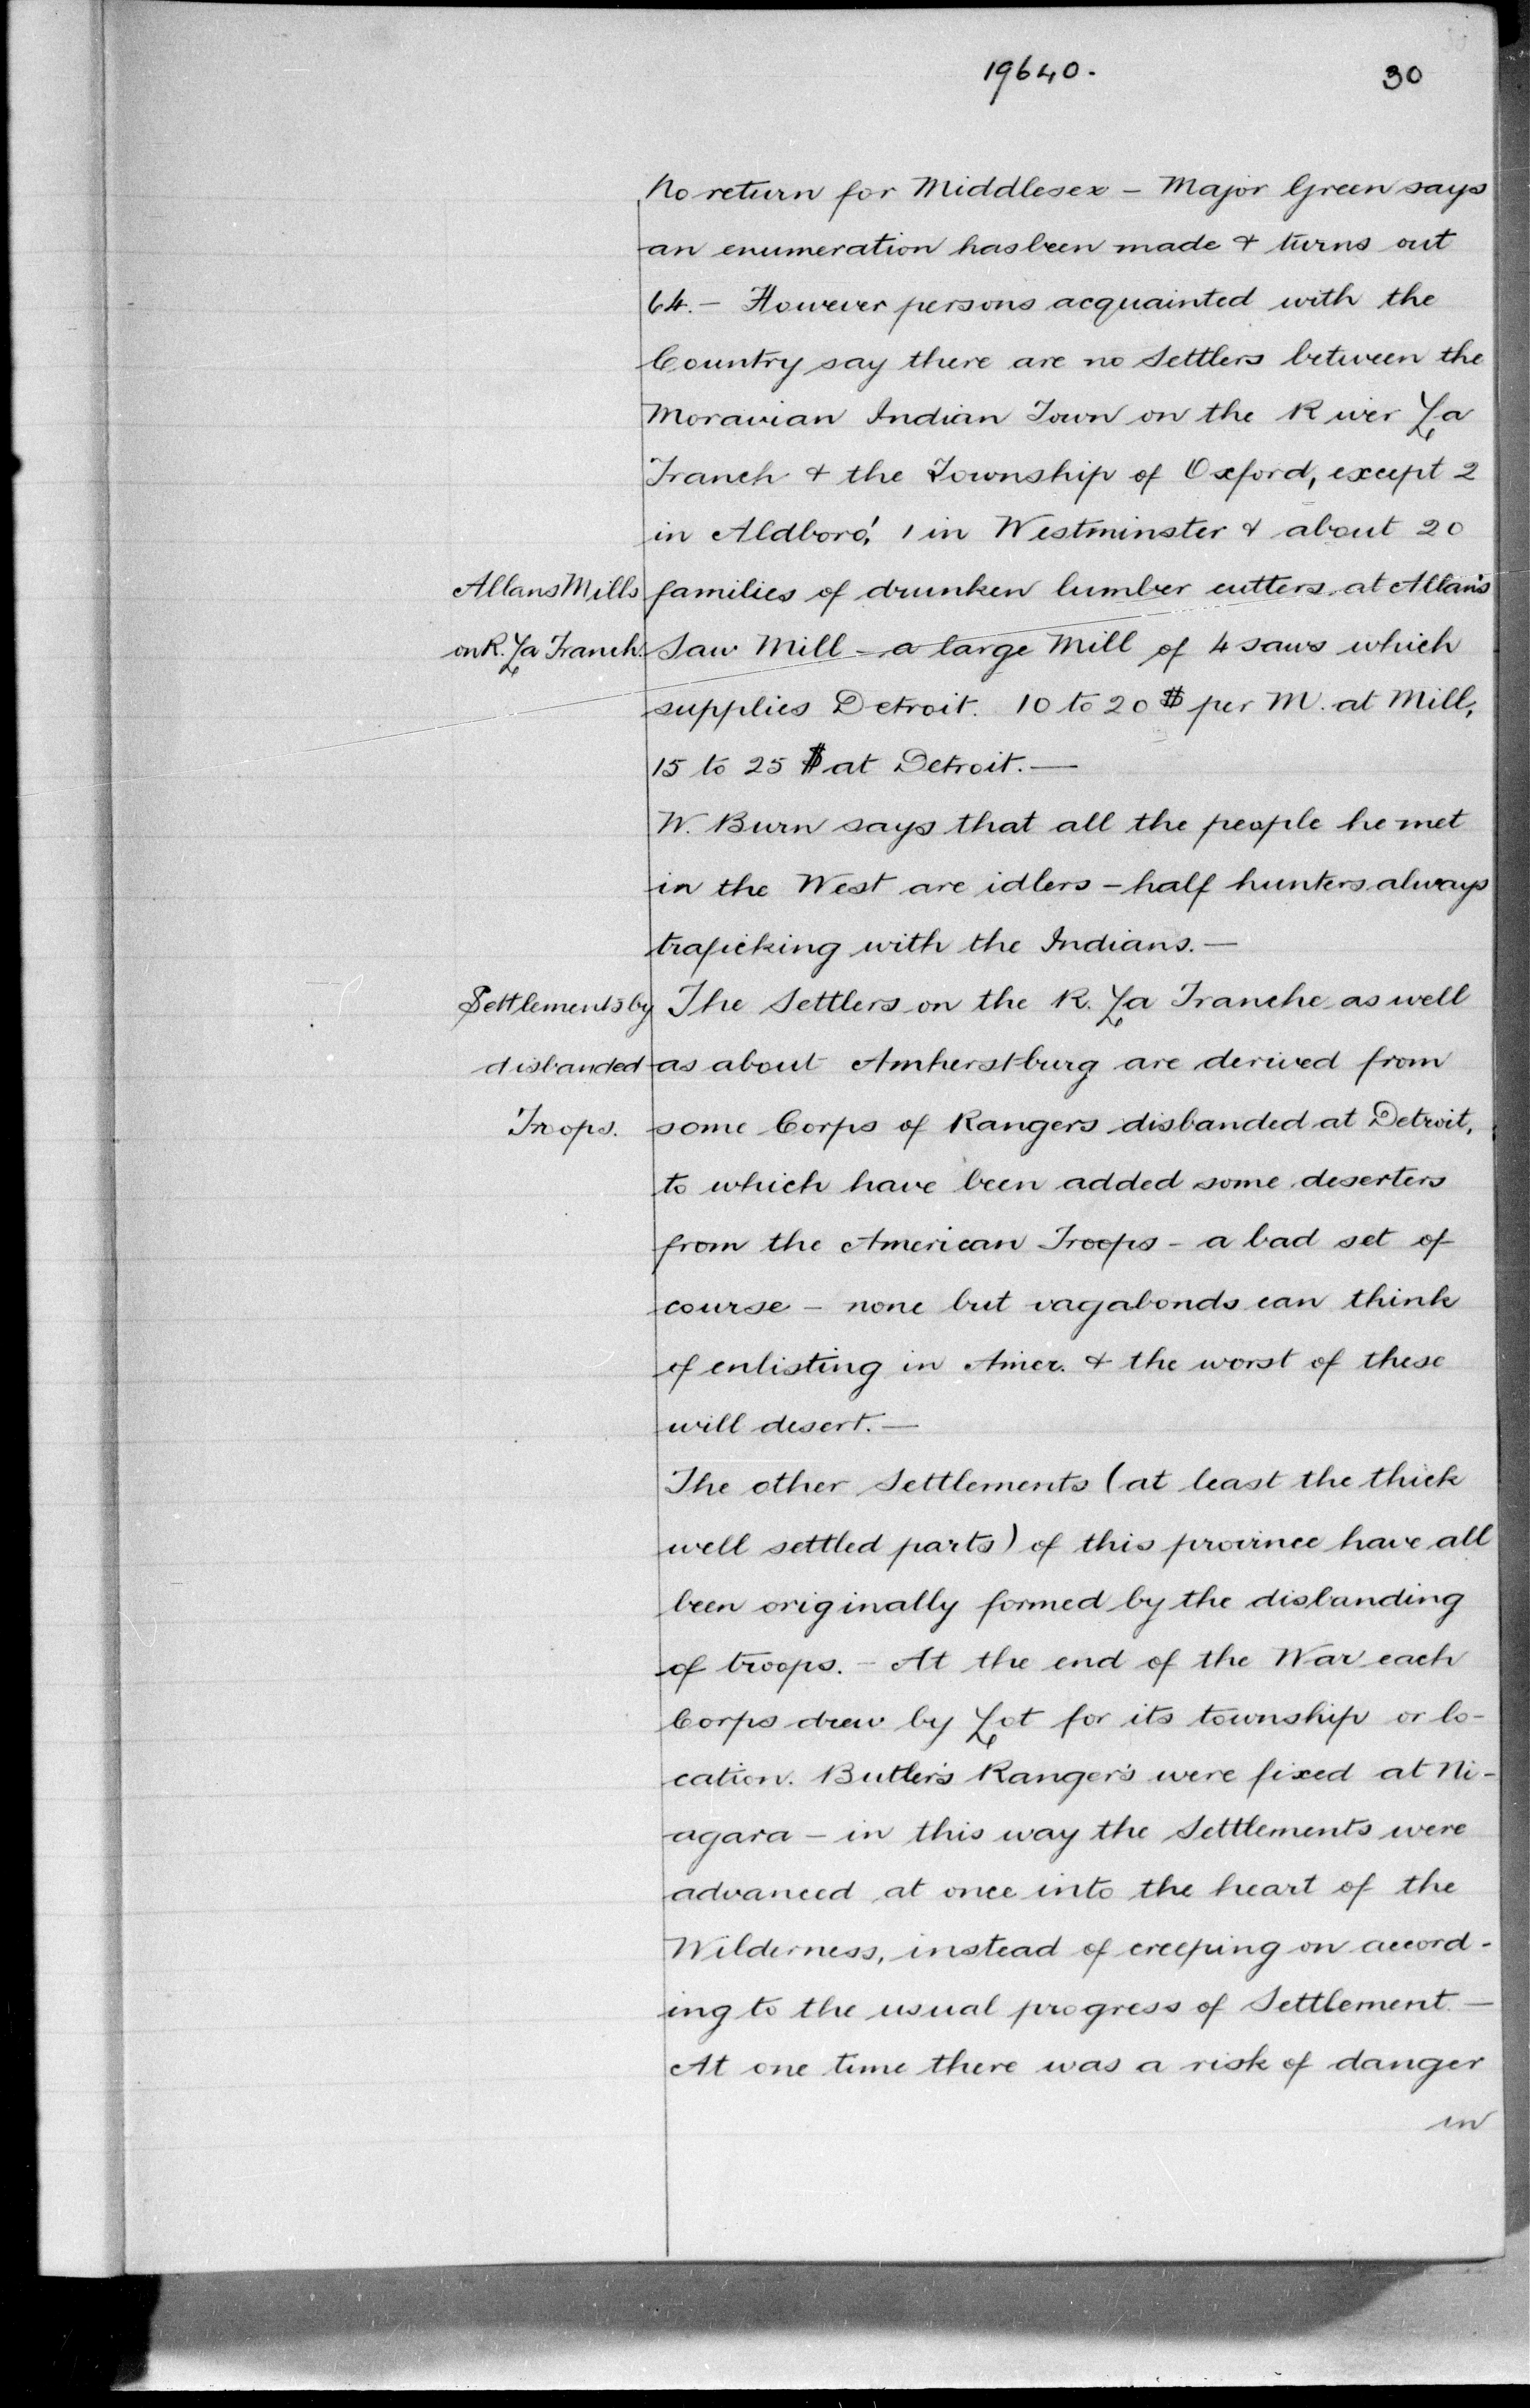 19640.
30
No return for Middlesex - Major Green says
an enumeration has been made & turns out
64. - However persons acquainted with the
Country say there are no Settlers between the
Moravian Indian Town on the River La
Tranch & the Township of Oxford, except 2
in Aldboro', 1 in Westminster & about 20
Allans Mills
families of drunken lumber cutters at Allan's
on R. La Tranch.
Saw Mill - a large Mill of 4 saws which
supplies Detroit. 10 to 20 $ per M. at Mill,
15 to 25 $ at Detroit. -
W. Burn says that all the people he met
in the West are idlers - half hunters always
traficking with the Indians. -
Settlements by
The Settlers on the R. La Tranche as well
disbanded
as about Amherstburg are derived from
Troops.
some Corps of Rangers disbanded at Detroit,
to which have been added some deserters
from the American Troops - a bad set of
course - none but vagabonds can think
of enlisting in Amer. & the worst of these
will desert. -
The other Settlements (at least the thick
well settled parts) of this province have all
been originally formed by the disbanding
of troops. - At the end of the War each
Corps drew by Lot for its township or lo-
cation. Butler's Ranger's were fixed at Ni-
agara - in this way the Settlements were
advanced at once into the heart of the
Wilderness, instead of creeping on accord-
ing to the usual progress of Settlement. -
At one time there was a risk of danger
in